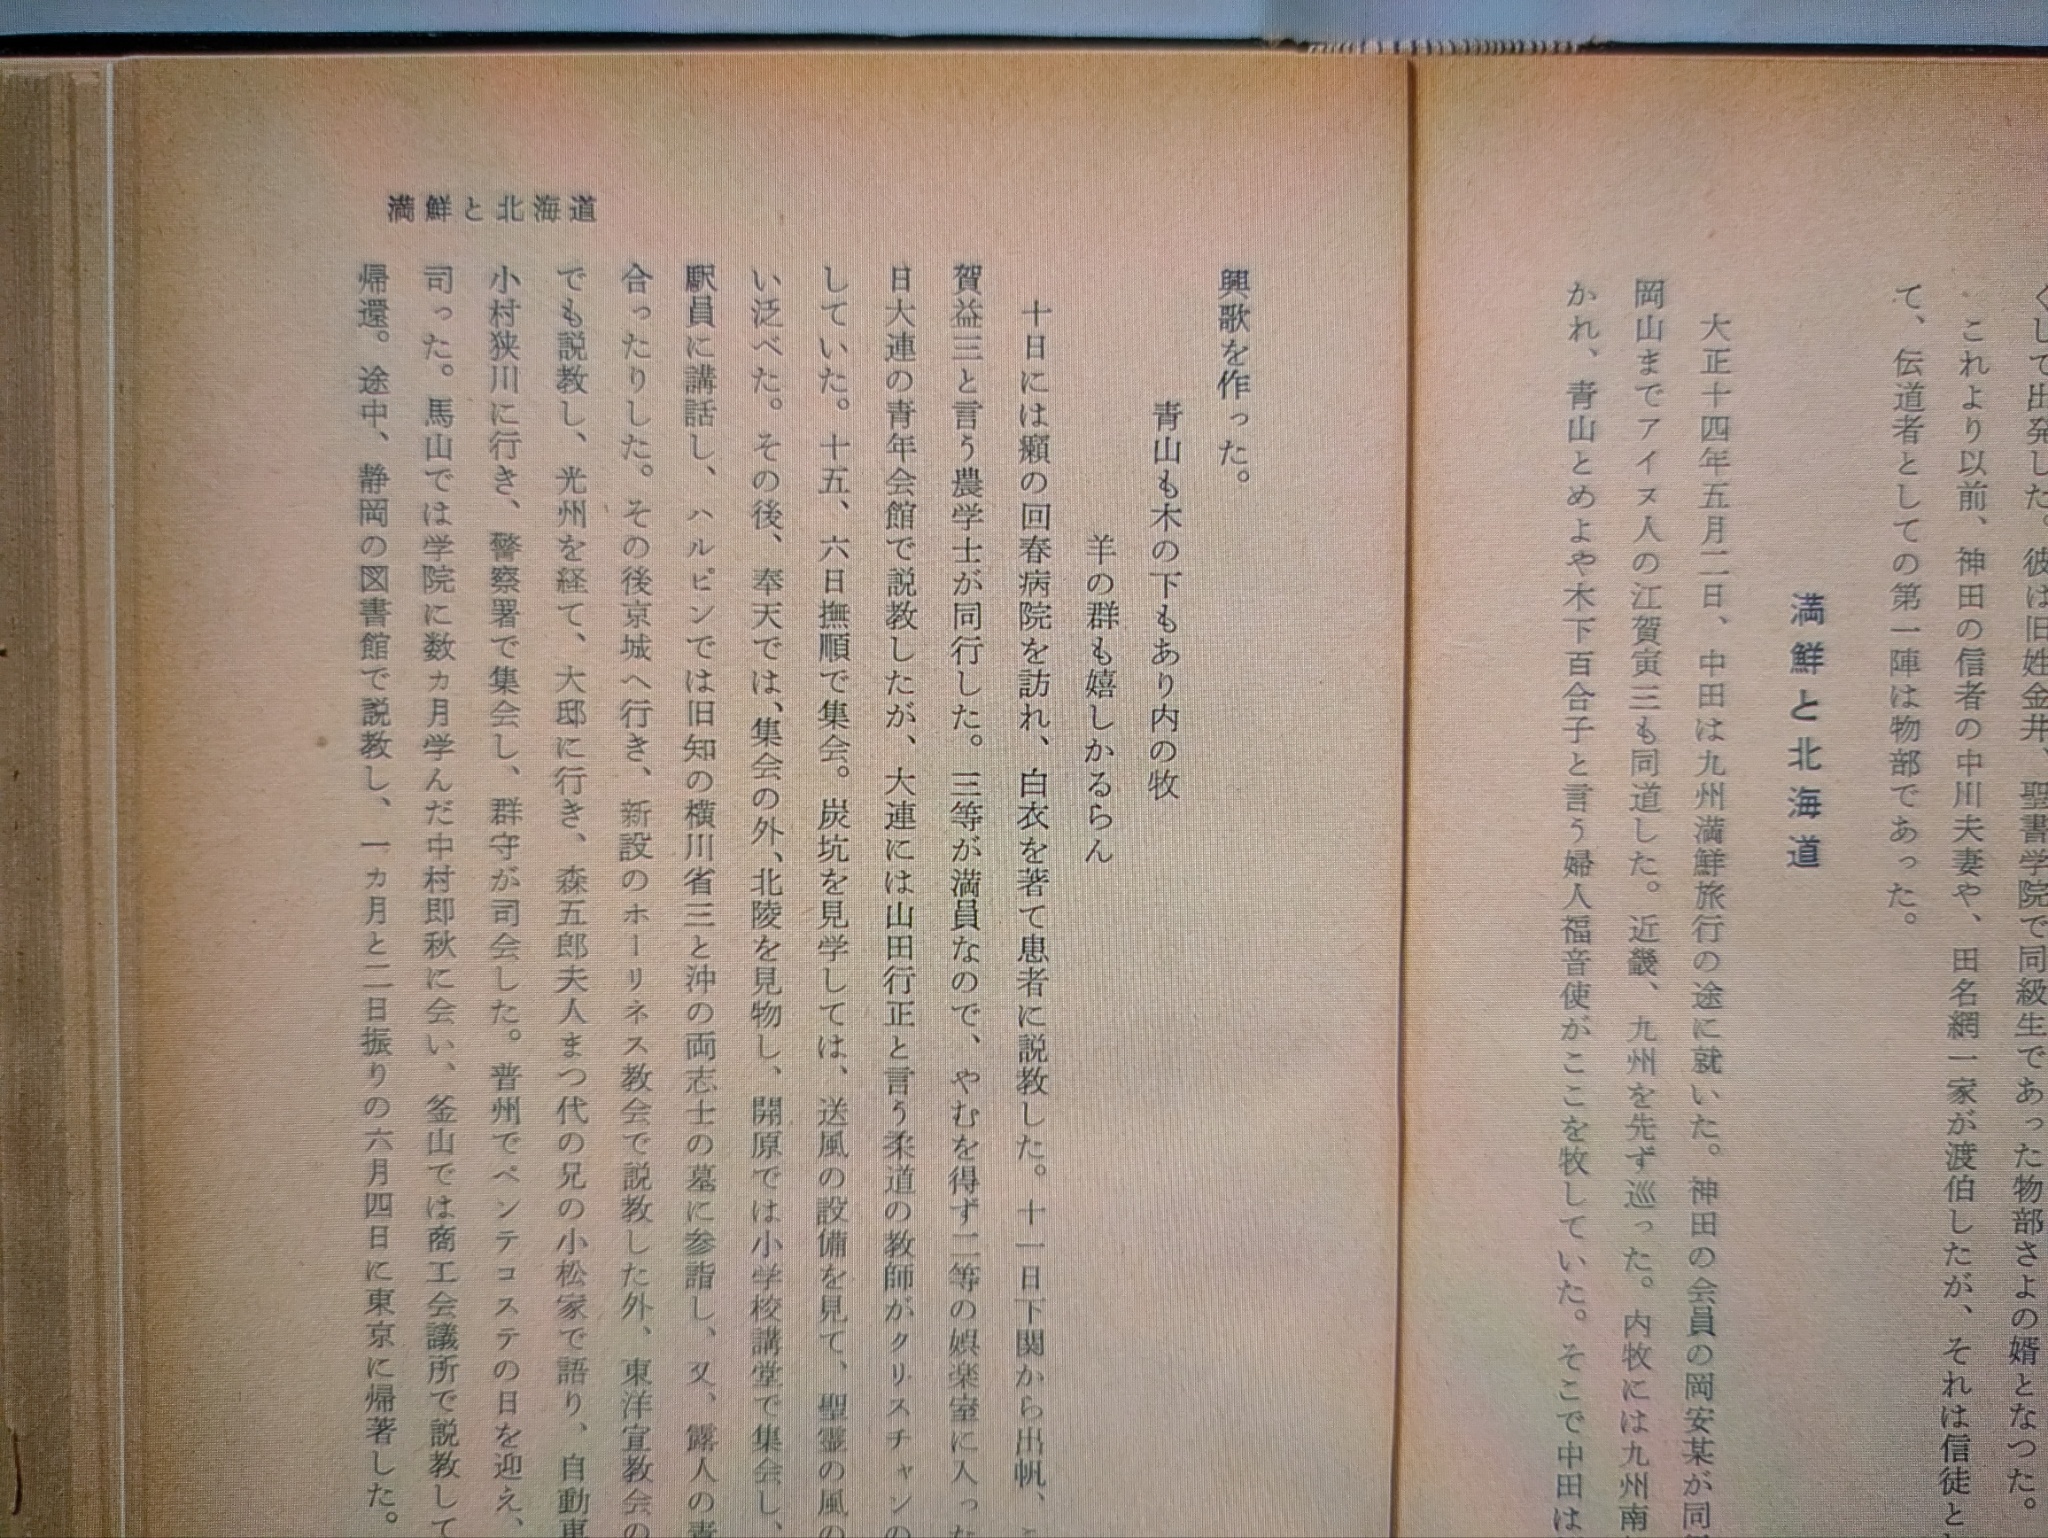 くして出発した。彼は旧姓金井、聖書学院で同級生であった物部さよの婿となつた。
これより以前、神田の信者の中川夫妻や、田名網一家が渡伯したが、それは信徒と
て、伝道者としての第一陣は物部であった。
満鮮と北海道
大正十四年五月二日、中田は九州満鮮旅行の途に就いた。神田の会員の岡安某が同
岡山までアイヌ人の江賀寅三も同道した。近畿、九州を先ず巡った。内牧には九州南
かれ、青山とめよや木下百合子と言う婦人福音使がここを牧していた。そこで中田は
満鮮と北海道
興歌を作った。
青山も木の下もあり内の牧
羊の群も嬉しかるらん
十日には癩の回春病院を訪れ、白衣を著て患者に説教した。十一日下関から出帆、
賀益三と言う農学士が同行した。三等が満員なので、やむを得ず二等の娯楽室に入った
日大連の青年会館で説教したが、大連には山田行正と言う柔道の教師がクリスチャンの
していた。十五、六日撫順で集会。炭坑を見学しては、送風の設備を見て、聖霊の風の
い泛べた。その後、奉天では、集会の外、北陵を見物し、開原では小学校講堂で集会し、
駅員に講話し、ハルピンでは旧知の横川省三と沖の両志士の墓に参詣し、又、露人の青
合ったりした。その後京城へ行き、新設のホーリネス教会で説教した外、東洋宣教会の
でも説教し、光州を経て、大邸に行き、森五郎夫人まつ代の兄の小松家で語り、自動車
小村狭川に行き、警察署で集会し、群守が司会した。普州でペンテコステの日を迎え、
司った。馬山では学院に数ヵ月学んだ中村即秋に会い、釜山では商工会議所で説教して
帰還。途中、静岡の図書館で説教し、一ヵ月と二日振りの六月四日に東京に帰著した。